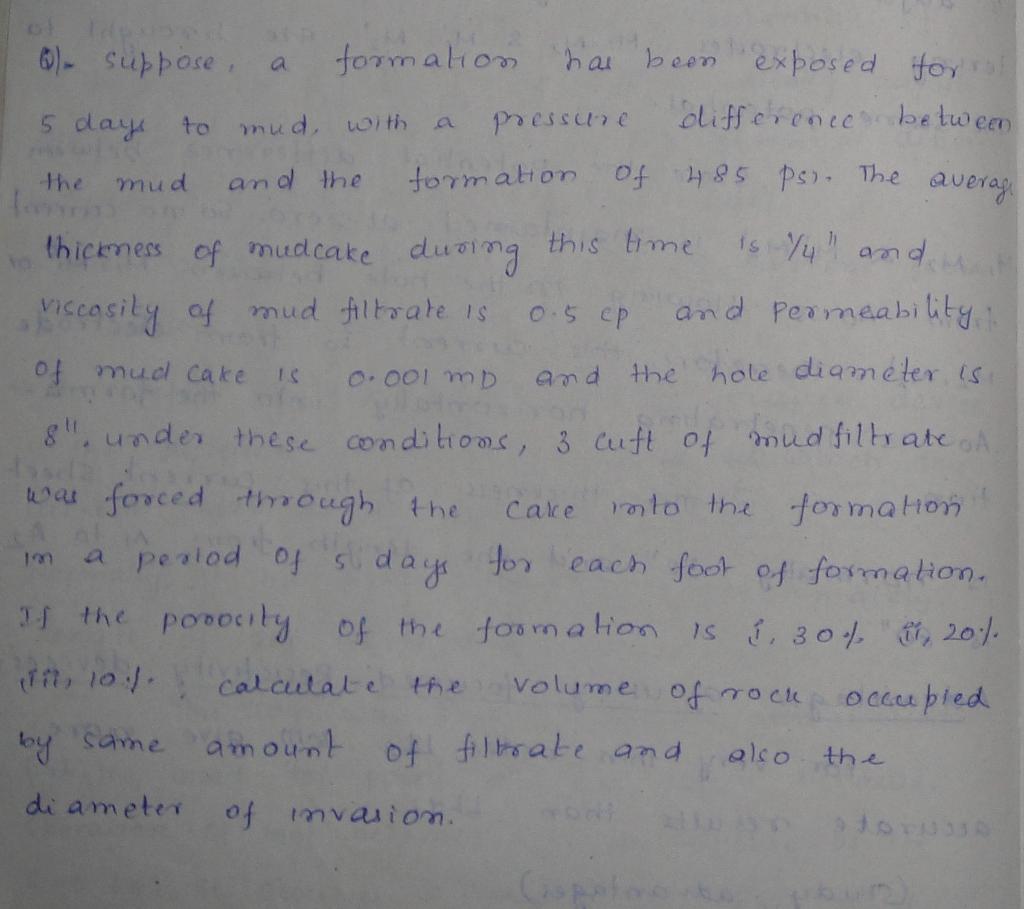 Q)- Suppose, a formation has been exposed for
5 days to mud, with a pressure difference between
the mud and the formation of 485 psi. The average
thickness of mudcake during this time is 1/4" and
viscosity of mud filtrate is 0.5 cp and permeability
of mud cake is 0.001 mD and the hole diameter is
8", under these conditions, 3 cuft of mud filtrate
was forced through the cake into the formation
in a period of 5 days for each foot of formation.
If the porocity of the formation is i, 30% ii, 20%
iii, 10%. calculate the volume of rock occupied
by same amount of filtrate and also the
diameter of invasion.